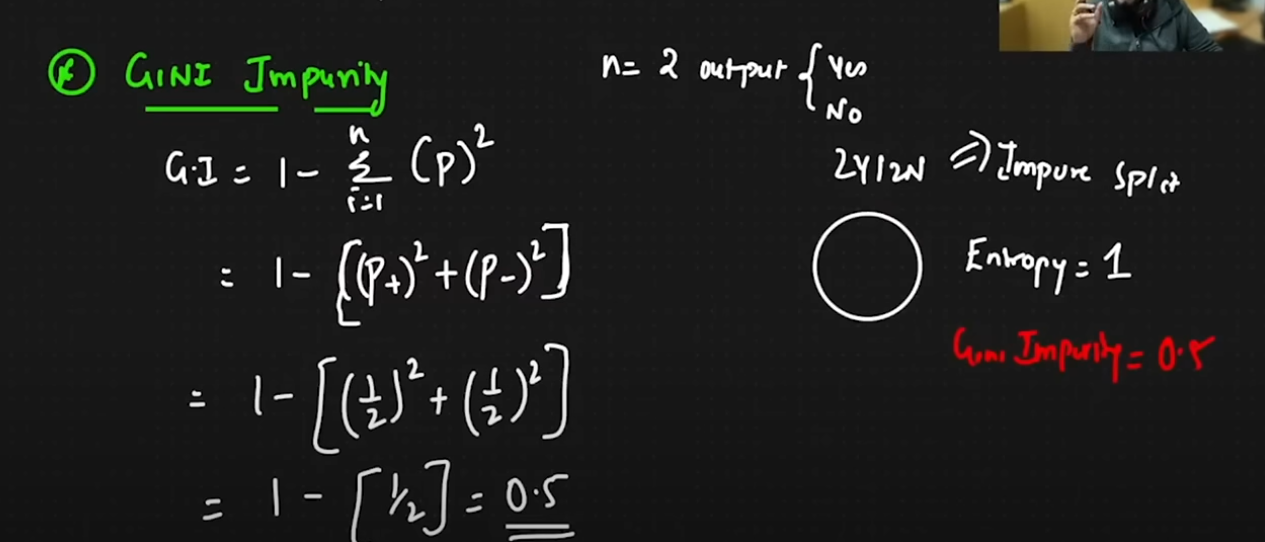 GINI Impurity
G.I = 1 - n Σ i=1 (P)²
= 1 - [(P+)² + (P-)²]
= 1 - [(1/2)² + (1/2)²]
= 1 - [1/2] = 0.5
n = 2 output { Yes
No
2Y|2N ⇒ Impure Split
Entropy = 1
Gini Impurity = 0.5